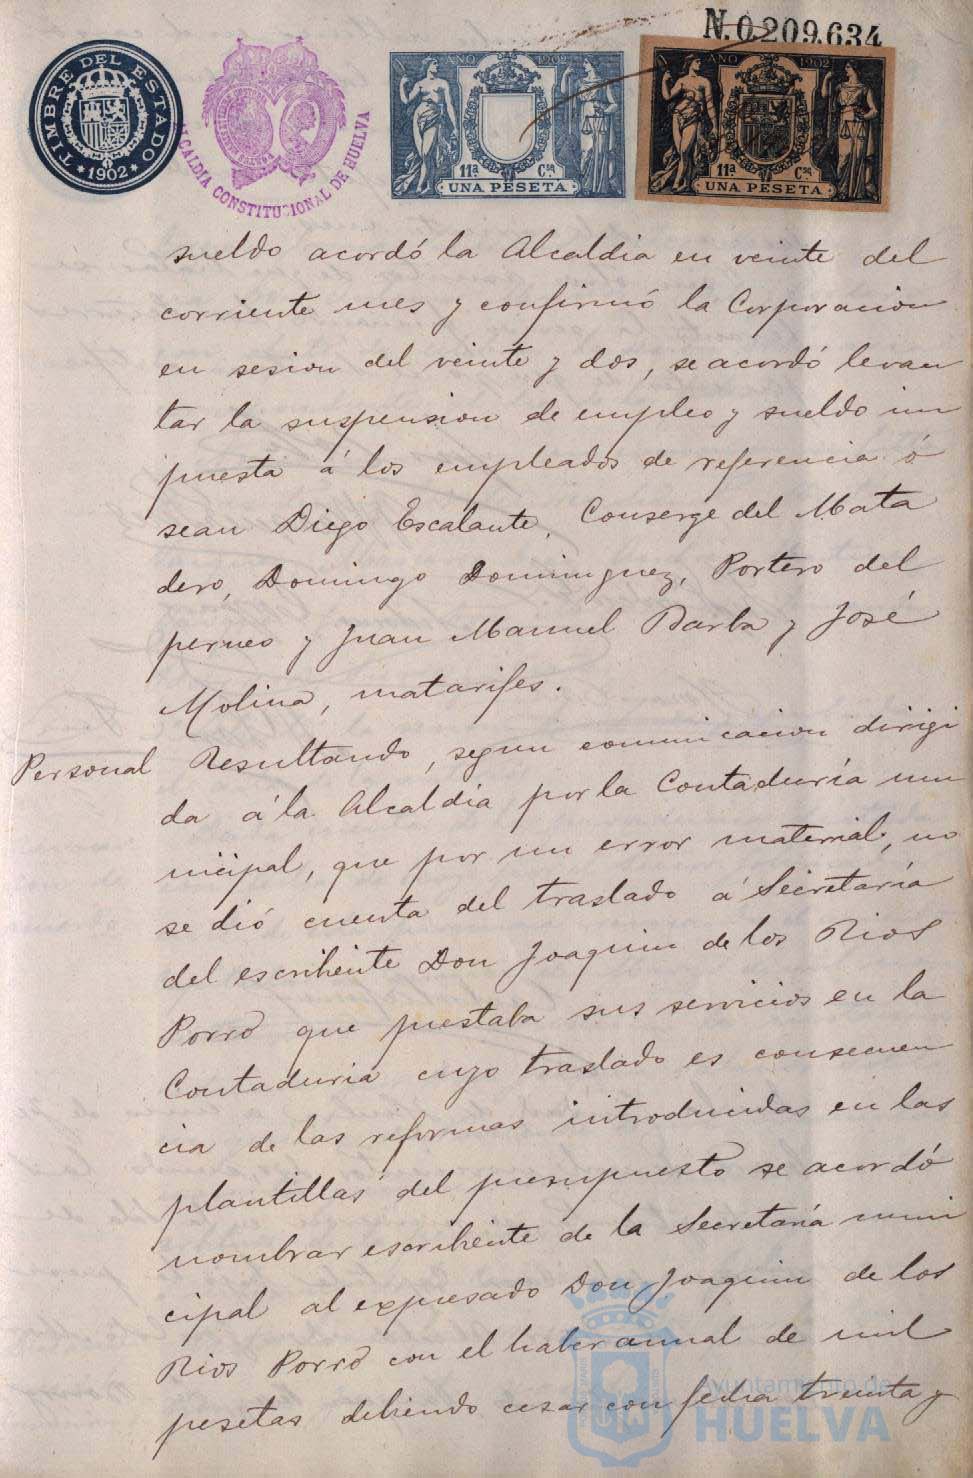 N. 0.209.634
TIMBRE DEL ESTADO
*1902*
ALCALDIA CONSTITUCIONAL DE HUELVA
AÑO 1902
11ª Cˢᵉ
UNA PESETA
AÑO 1902
11ª Cˢᵉ
UNA PESETA
sueldo acordó la Alcaldia en veinte del
corriente mes y confirmó la Corporacion
en sesion del veinte y dos, se acordó levan
tar la suspension de empleo y sueldo im
puesta á los empleados de referencia ó
sean Diego Escalante, Conserge del Mata
dero, Domingo Dominguez, Portero del
perneo y Juan Manuel Barba y José
Molina, matarifes.
Personal Resultando, segun comunicacion dirigi
da á la Alcaldia por la Contaduría mu
nicipal, que por un error material, no
se dió cuenta del traslado á Secretaría
del escribiente Don Joaquin de los Rios
Porro que prestaba sus servicios en la
Contaduria cuyo traslado es consecuen
cia de las reformas introducidas en las
plantillas del presupuesto se acordó
nombrar escribiente de la Secretaría muni
cipal al expresado Don Joaquin de los
Rios Porro con el haber anual de mil
pesetas debiendo cesar con fecha treinta y
Ayuntamiento de
HUELVA